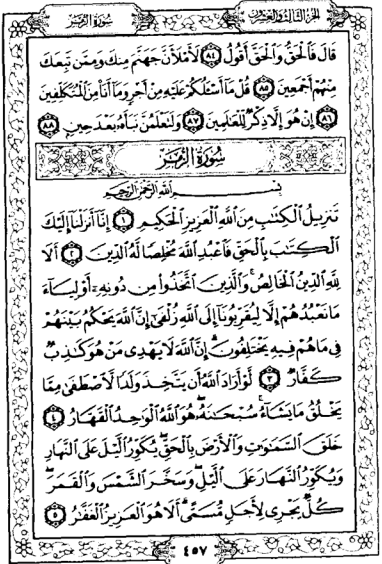 سُورَةُ الزُّمَرِ
الجُزْءُ الثَّالِثُ وَالعِشْرُونَ
قَالَ فَالْحَقُّ وَالْحَقَّ أَقُولُ ٨٤ لَأَمْلَأَنَّ جَهَنَّمَ مِنكَ وَمِمَّن تَبِعَكَ
مِنْهُمْ أَجْمَعِينَ ٨٥ قُلْ مَا أَسْـَٔلُكُمْ عَلَيْهِ مِنْ أَجْرٍ وَمَا أَنَا۠ مِنَ الْمُتَكَلِّفِينَ
٨٦ إِنْ هُوَ إِلَّا ذِكْرٌ لِّلْعَٰلَمِينَ ٨٧ وَلَتَعْلَمُنَّ نَبَأَهُۥ بَعْدَ حِينٍۭ ٨٨
سُورَةُ الزُّمَرِ
بِسْمِ اللَّهِ الرَّحْمَٰنِ الرَّحِيمِ
تَنزِيلُ الْكِتَٰبِ مِنَ اللَّهِ الْعَزِيزِ الْحَكِيمِ ١ إِنَّا أَنزَلْنَا إِلَيْكَ
الْكِتَٰبَ بِالْحَقِّ فَاعْبُدِ اللَّهَ مُخْلِصًا لَّهُ الدِّينَ ٢ أَلَا
لِلَّهِ الدِّينُ الْخَالِصُ ۚ وَالَّذِينَ اتَّخَذُوا مِن دُونِهِۦ أَوْلِيَاءَ
مَا نَعْبُدُهُمْ إِلَّا لِيُقَرِّبُونَا إِلَى اللَّهِ زُلْفَىٰ إِنَّ اللَّهَ يَحْكُمُ بَيْنَهُمْ
فِي مَا هُمْ فِيهِ يَخْتَلِفُونَ ۗ إِنَّ اللَّهَ لَا يَهْدِي مَنْ هُوَ كَٰذِبٌ
كَفَّارٌ ٣ لَّوْ أَرَادَ اللَّهُ أَن يَتَّخِذَ وَلَدًا لَّاصْطَفَىٰ مِمَّا
يَخْلُقُ مَا يَشَاءُ ۚ سُبْحَٰنَهُۥ ۖ هُوَ اللَّهُ الْوَٰحِدُ الْقَهَّارُ ٤
خَلَقَ السَّمَٰوَٰتِ وَالْأَرْضَ بِالْحَقِّ ۖ يُكَوِّرُ الَّيْلَ عَلَى النَّهَارِ
وَيُكَوِّرُ النَّهَارَ عَلَى الَّيْلِ ۖ وَسَخَّرَ الشَّمْسَ وَالْقَمَرَ ۖ
كُلٌّ يَجْرِي لِأَجَلٍ مُّسَمًّى ۗ أَلَا هُوَ الْعَزِيزُ الْغَفَّٰرُ ٥
٤٥٧